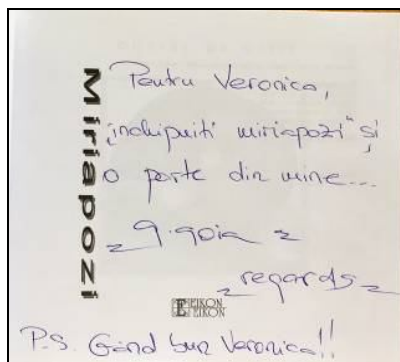 Miriapozi
Pentru Veronica,
„închipuiți miriapozi" și
o parte din mine...
regards
EIKON
EIKON
P.S. Gând bun Veronica!!